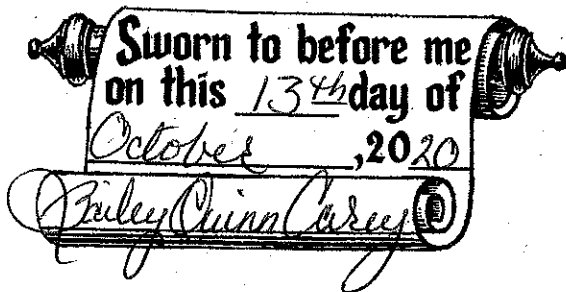 Sworn to before me
on this 13th day of
October, 2020
Bailey Quinn Carey